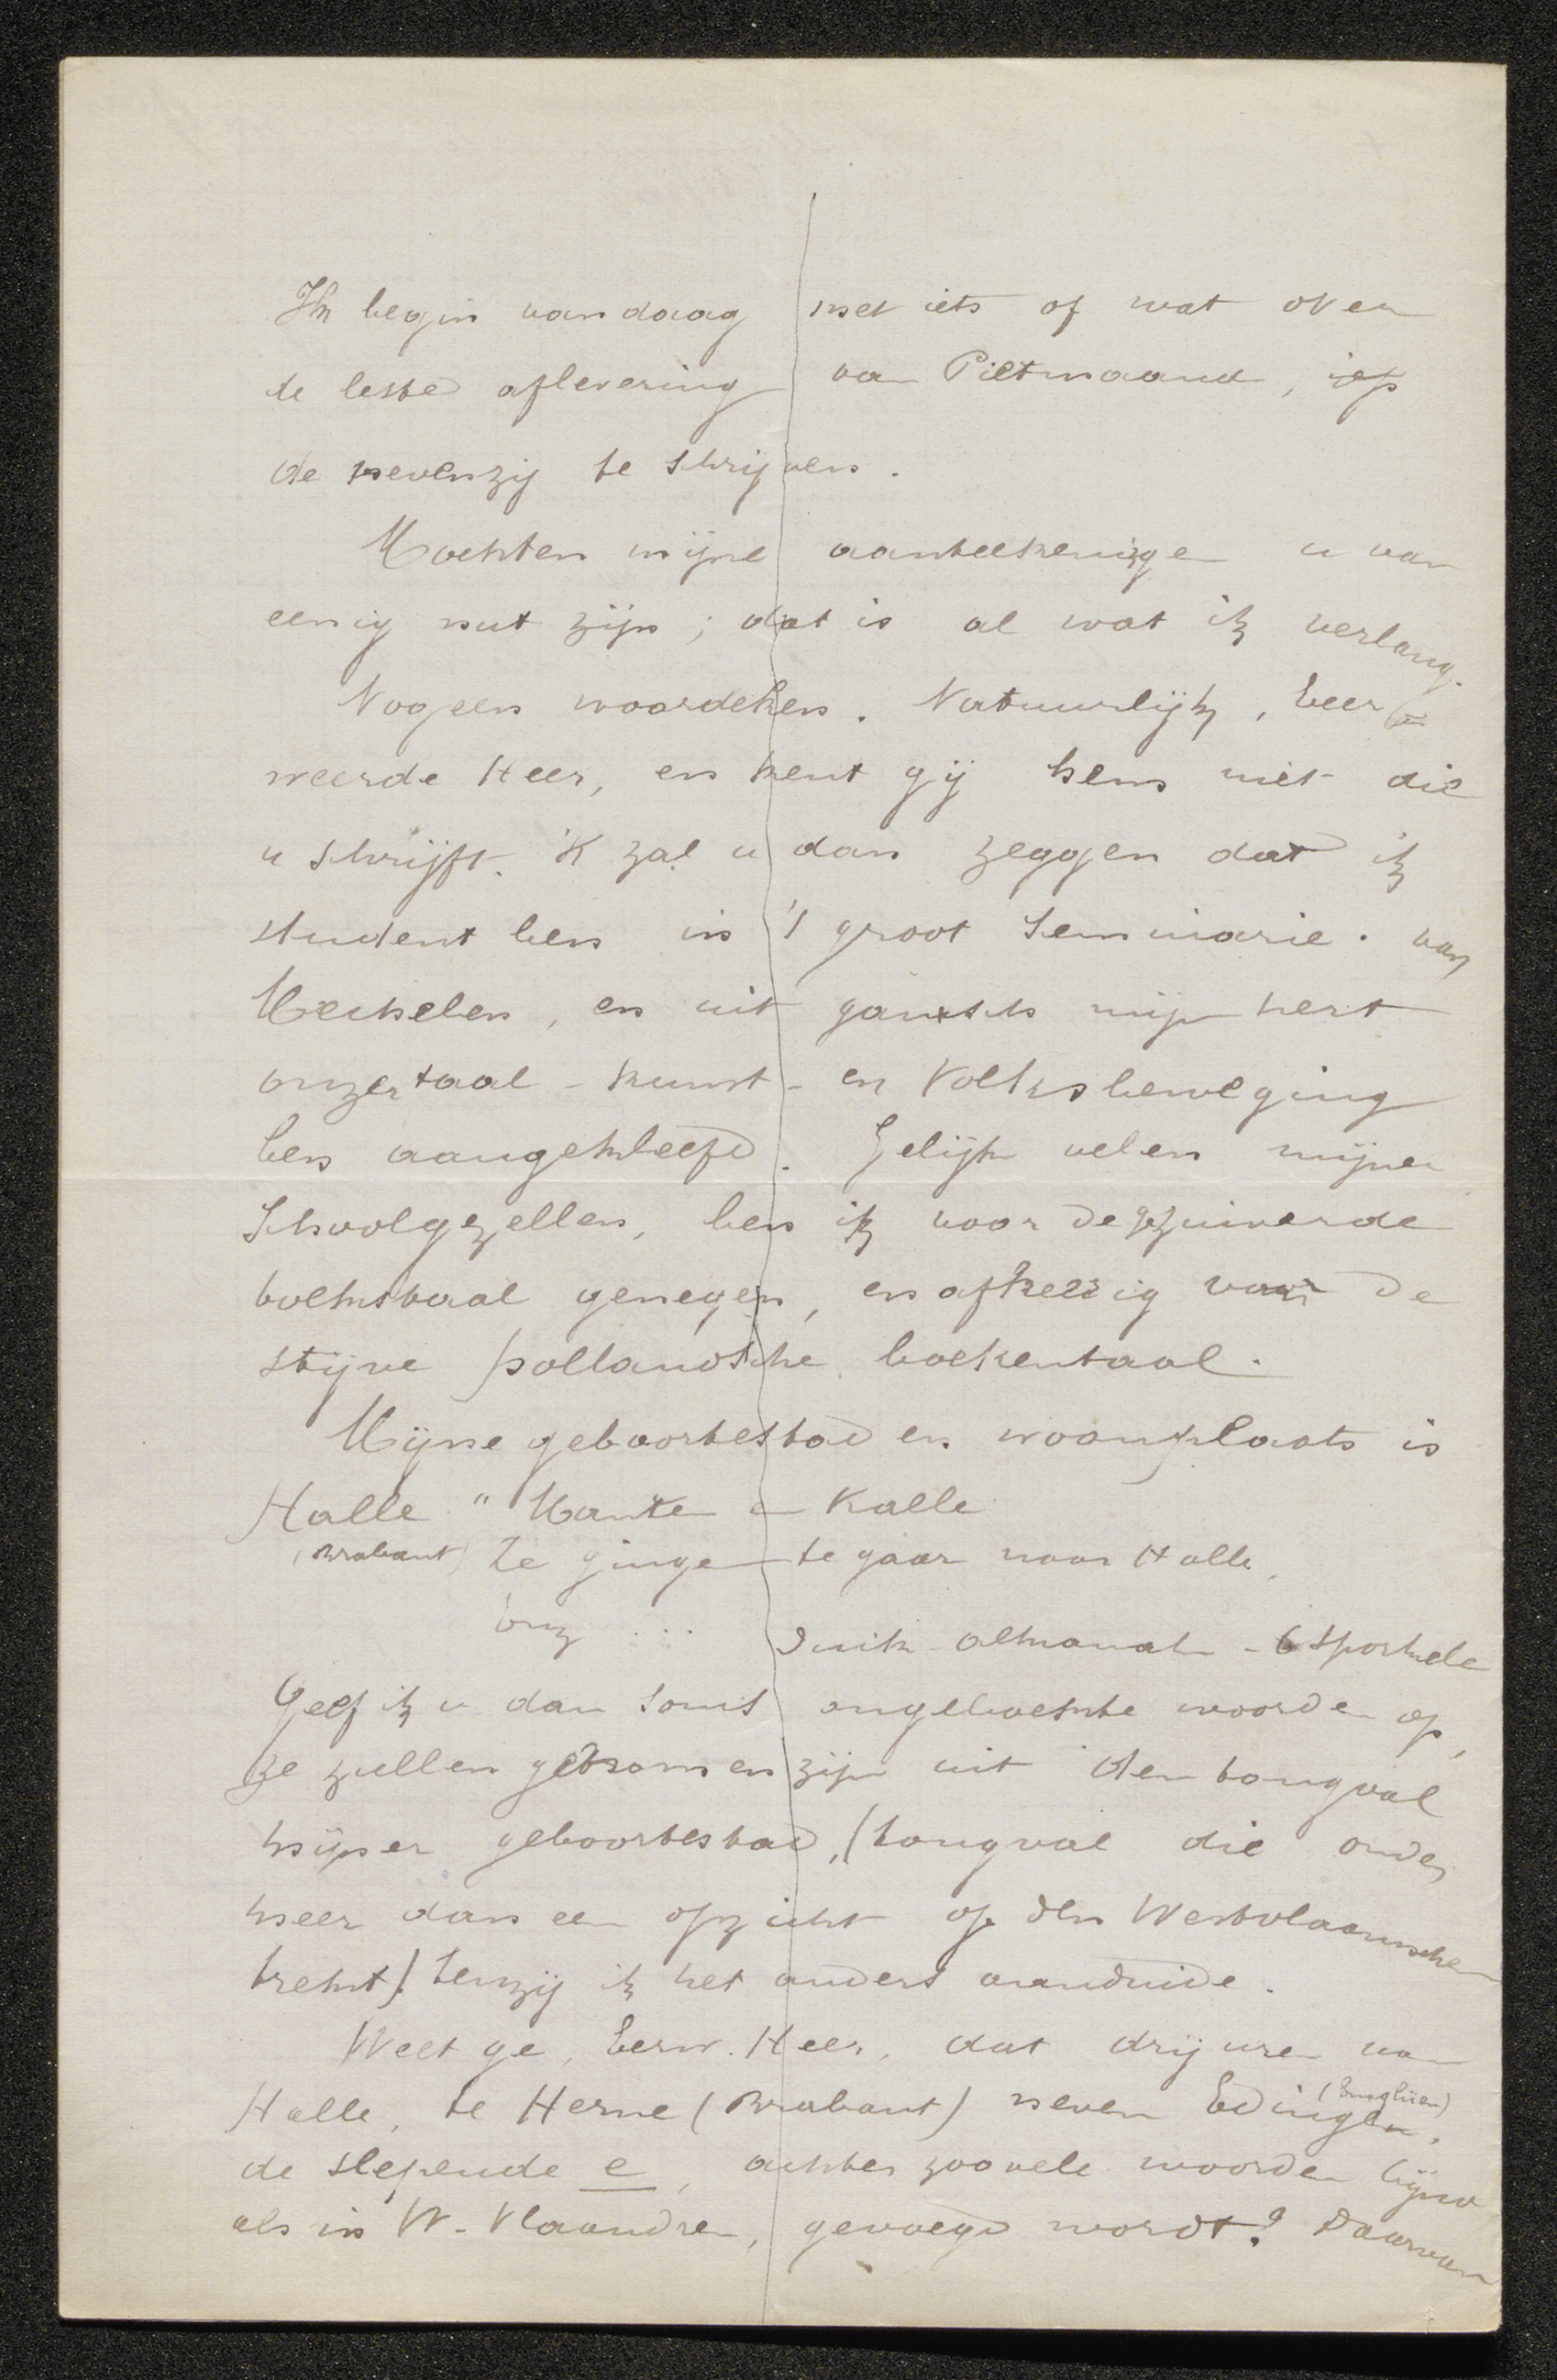 Ik begin vandaag met iets of wat over
de leste aflevering van Pietmaand, op
de nevenzij te schrijven.
Mochten mijne aanteekeninge u van
eenig nut zijn; dat is al wat ik verlang.
Nog een woordeken. Natuurlijk, Eer-
weerde Heer, en kent gij hem niet die
u schrijft. 'K zal u dan zeggen dat ik
student ben in 't groot Seminarie van
Mechelen, en uit gansch mijn hert
onzer taal- kunst- en Volksbeweging
ben aangekleefd. Gelijk velen mijner
Schoolgezellen, ben ik voor de gezuiverde
volkstaal genegen, en afkeerig van de
stijve hollandsche boekentaal.
Mijne geboortestad en woonplaats is
Halle "Mante en Kalle
(Brabant) Ze ginge te gaar naar Halle,
enz ... Duik-almanak - 6 Sporkele
Geef ik u dan soms ongeboekte woorden op,
ze zullen genomen zijn uit den tongval
mijner geboortestad, (tongval die onder
meer dan een opzicht op den Westvlaamschen
trekt) tenzij ik het anders aanduide.
Weet ge, Eerw. Heer, dat drij uren van
Halle, te Herne (Brabant) neven Edingen (Enghien),
de slepende e, achter zoovele woorden bijna
als in W.-Vlaandren, gevoegd wordt? Daarvan